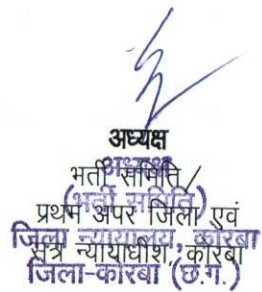 अध्यक्ष
अध्यक्ष
भर्ती समिति/
(भर्ती समिति)
प्रथम अपर जिला एवं
जिला न्यायालय, कोरबा
सत्र न्यायाधीश, कोरबा
जिला-कोरबा (छ.ग.)